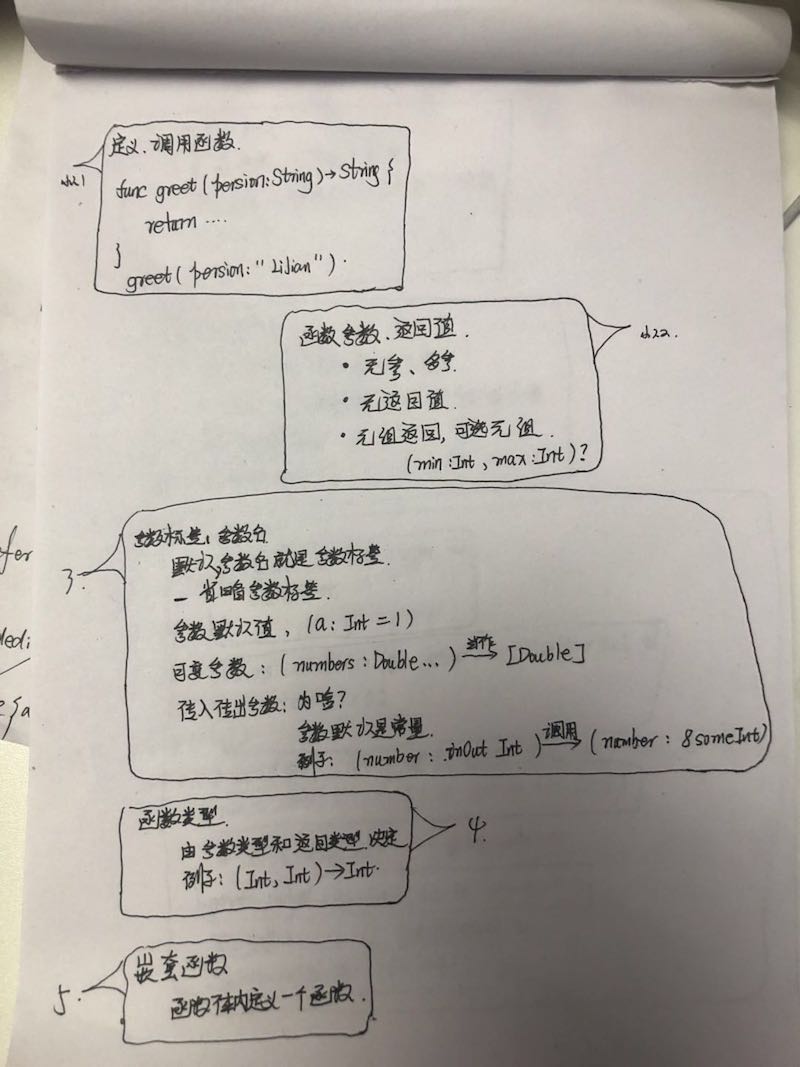 定义、调用函数.
func greet(persion:String)→String {
return ....
}
greet(persion:"Lilian").
函数参数、返回值.
• 无参、多参.
• 无返回值.
• 元组返回,可选元组.
(min:Int, max:Int)?
3.
参数标签;参数名.
默认,参数名就是参数标签.
_ 省略参数标签.
参数默认值, (a: Int = 1)
可变参数: (numbers: Double...) 当作→ [Double]
传入传出参数: 为啥?
参数默认是常量.
例子: (number: inOut Int) 调用→ (number: &someInt)
函数类型.
由参数类型和返回类型决定
例子: (Int, Int)→Int.
4.
5.
嵌套函数
函数体内定义一个函数.